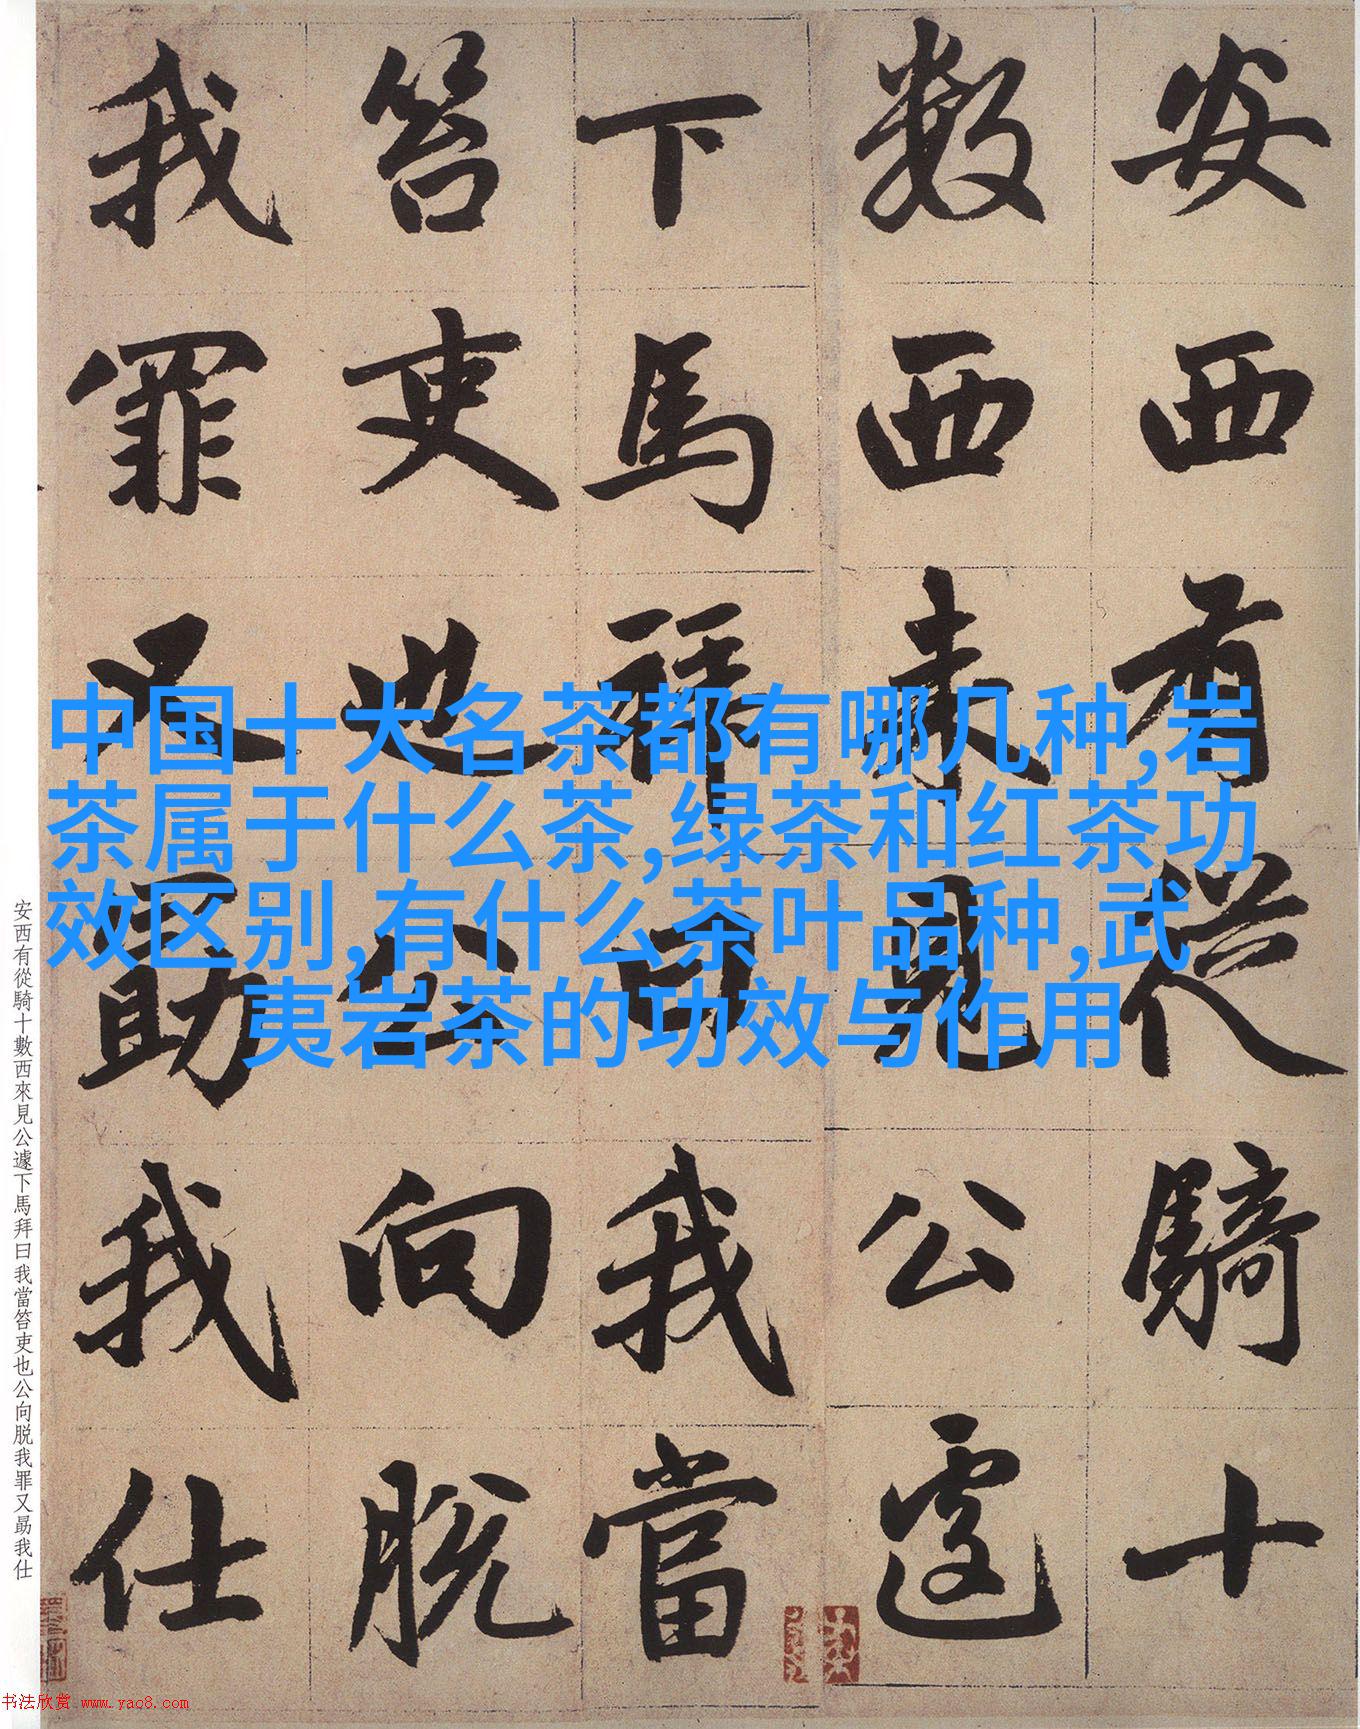 中国十大名茶都有哪几种,岩
茶属于什么茶,绿茶和红茶功
效区别,有什么茶叶品种,武
夷岩茶的功效与作用
安西有從騎十
數西来見公遽
下馬拜曰我當
笞吏也公向脱
我罪又勗我仕
安西有從騎十數西來見公遽下馬拜曰我當笞吏也公向脱我罪又勗我仕
书法欣赏 www.yac8.com